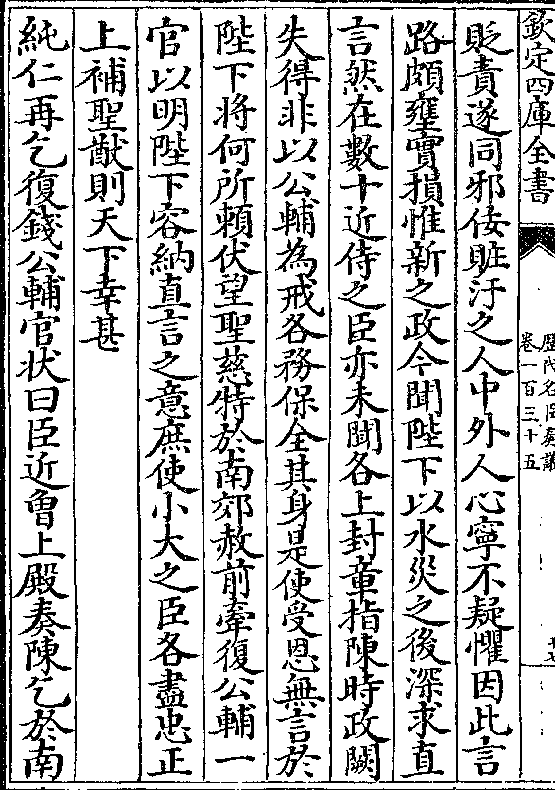 欽定四庫全書
歷代名臣奏議
卷一百三十五
貶責遂同邪佞贓汙之人中外人心寧不疑懼因此言
路頗壅實損惟新之政今聞陛下以水災之後深求直
言然在數十近侍之臣亦未聞各上封章指陳時政闕
失得非以公輔為戒各務保全其身是使受恩無言於
陛下將何所頼伏望聖慈特於南郊赦前牽復公輔一
官以明陛下容納直言之意庶使小大之臣各盡忠正
上補聖猷則天下幸甚
純仁再乞復錢公輔官状曰臣近曾上殿奏陳乞於南